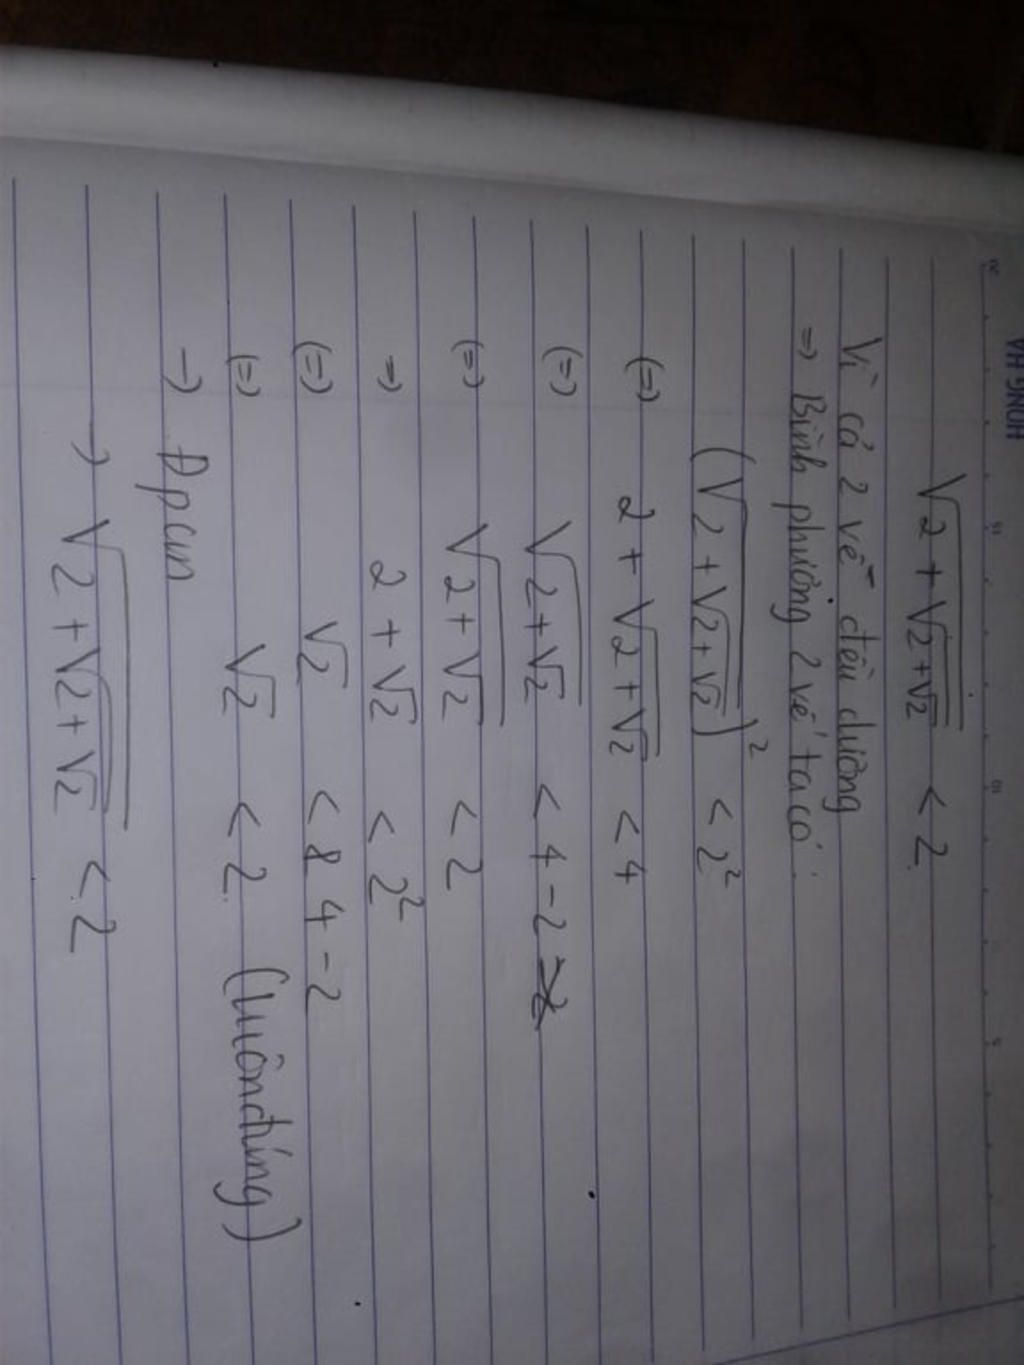 HỒNG HÀ
20 15 10 5
√(2+√(2+√2)) < 2
Vì cả 2 vế đều dương
=> Bình phương 2 vế ta có:
(√(2+√(2+√2)))² < 2²
(=) 2 + √(2+√2) < 4
(=) √(2+√2) < 4 - 2
(=) √(2+√2) < 2
=> 2 + √2 < 2²
(=) √2 < 4 - 2
(=) √2 < 2 (luôn đúng)
→ Đpcm
→ √(2+√(2+√2)) < 2